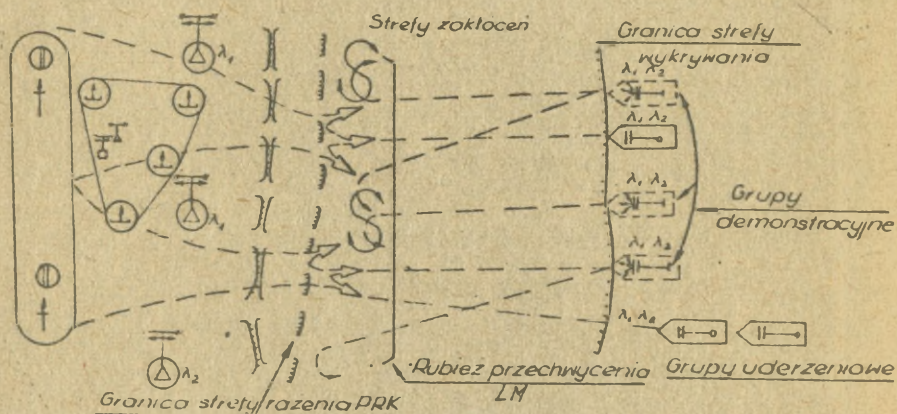 Strefy zakłóceń
Granica strefy
wykrywania
λ₁
λ₁, λ₂
λ₁, λ₂
λ₁, λ₂
Grupy
demonstracyjne
λ₁
λ₁, λ₂
λ₁, λ₂
λ₂
Rubież przechwycenia
LM
Grupy uderzeniowe
Granica strefy rażenia PRK